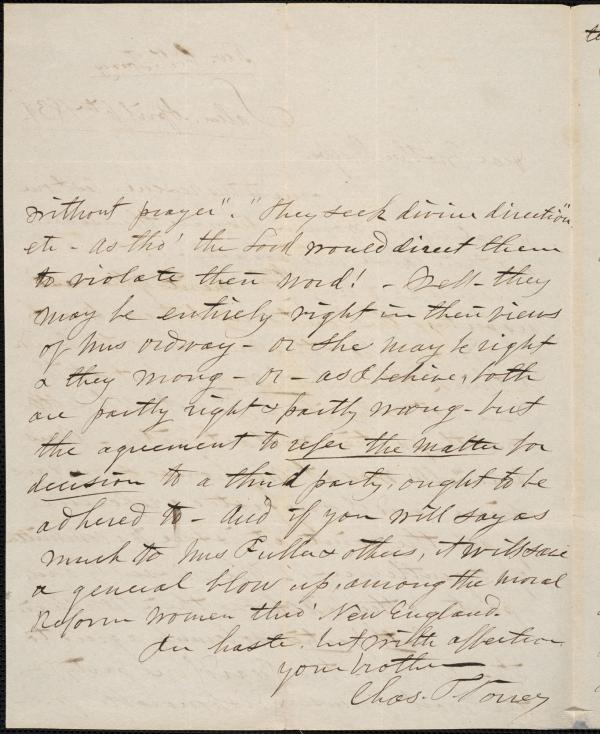 without prayer". "They seek divine direction"
etc - as tho' the Lord would direct them
to violate their word! - Well - they
may be entirely right in their views
of Mrs Ordway - or she may be right
& they wrong - or - as I believe, both
are partly right & partly wrong - but
the agreement to refer the matter for
decision to a third party, ought to be
adhered to - And if you will say as
much to Mrs Fuller & others, it will save
a general blow up, among the Moral
Reform women thro' New England.
In haste, but with affection
your brother
Chas. T. Torrey